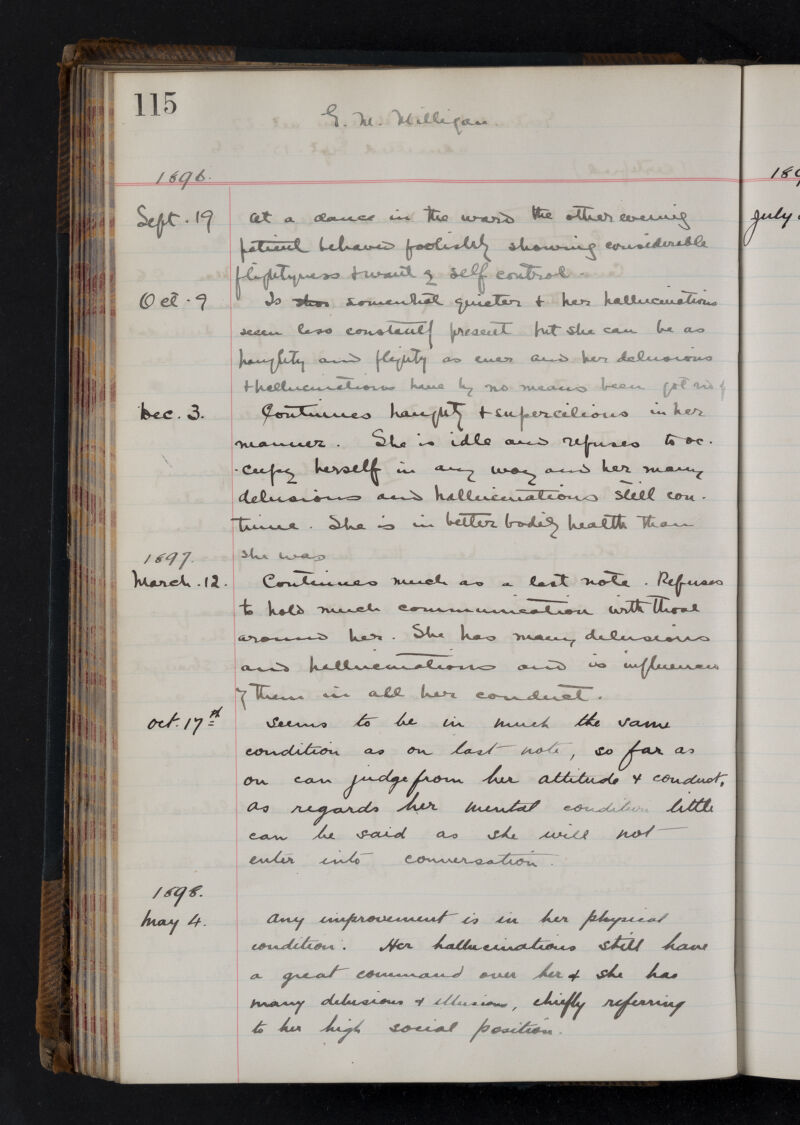 115
G. M. Milligan.
1896.
Sept. 19 At a dance in the ward the other evening
patient behaved foolishly showing considerable
flightyness & want of self control.
Oct. 9 Is somewhat quieter & her hallucinations
seem less constantly present but she can be as
haughty and flighty as ever and her delusions
& hallucinations have by no means been got rid of
Dec. 3. Continues haughty & supercilious in her
manner. She is idle and refuses to oc-
-cupy herself in any way and her many
delusions and hallucinations still con-
tinue. She is in better bodily health than
she was
1897.
March. 12. Continues much as a last note. Refuses
to hold much communication with those
around her. She has many delusions
and hallucinations and is influenced
by them in all her conduct.
Oct. 17th Seems to be in much the same
condition as on last note, so far as
on can judge from her attitude & conduct,
as regards her mental condition little
can be said as she will not
enter into conversation.
1898.
May 4. Any improvement is in her physical
condition. Her hallucinations still have
a great command over her & she has
many delusions & illusions, chiefly referring
to her high social position.
189
July